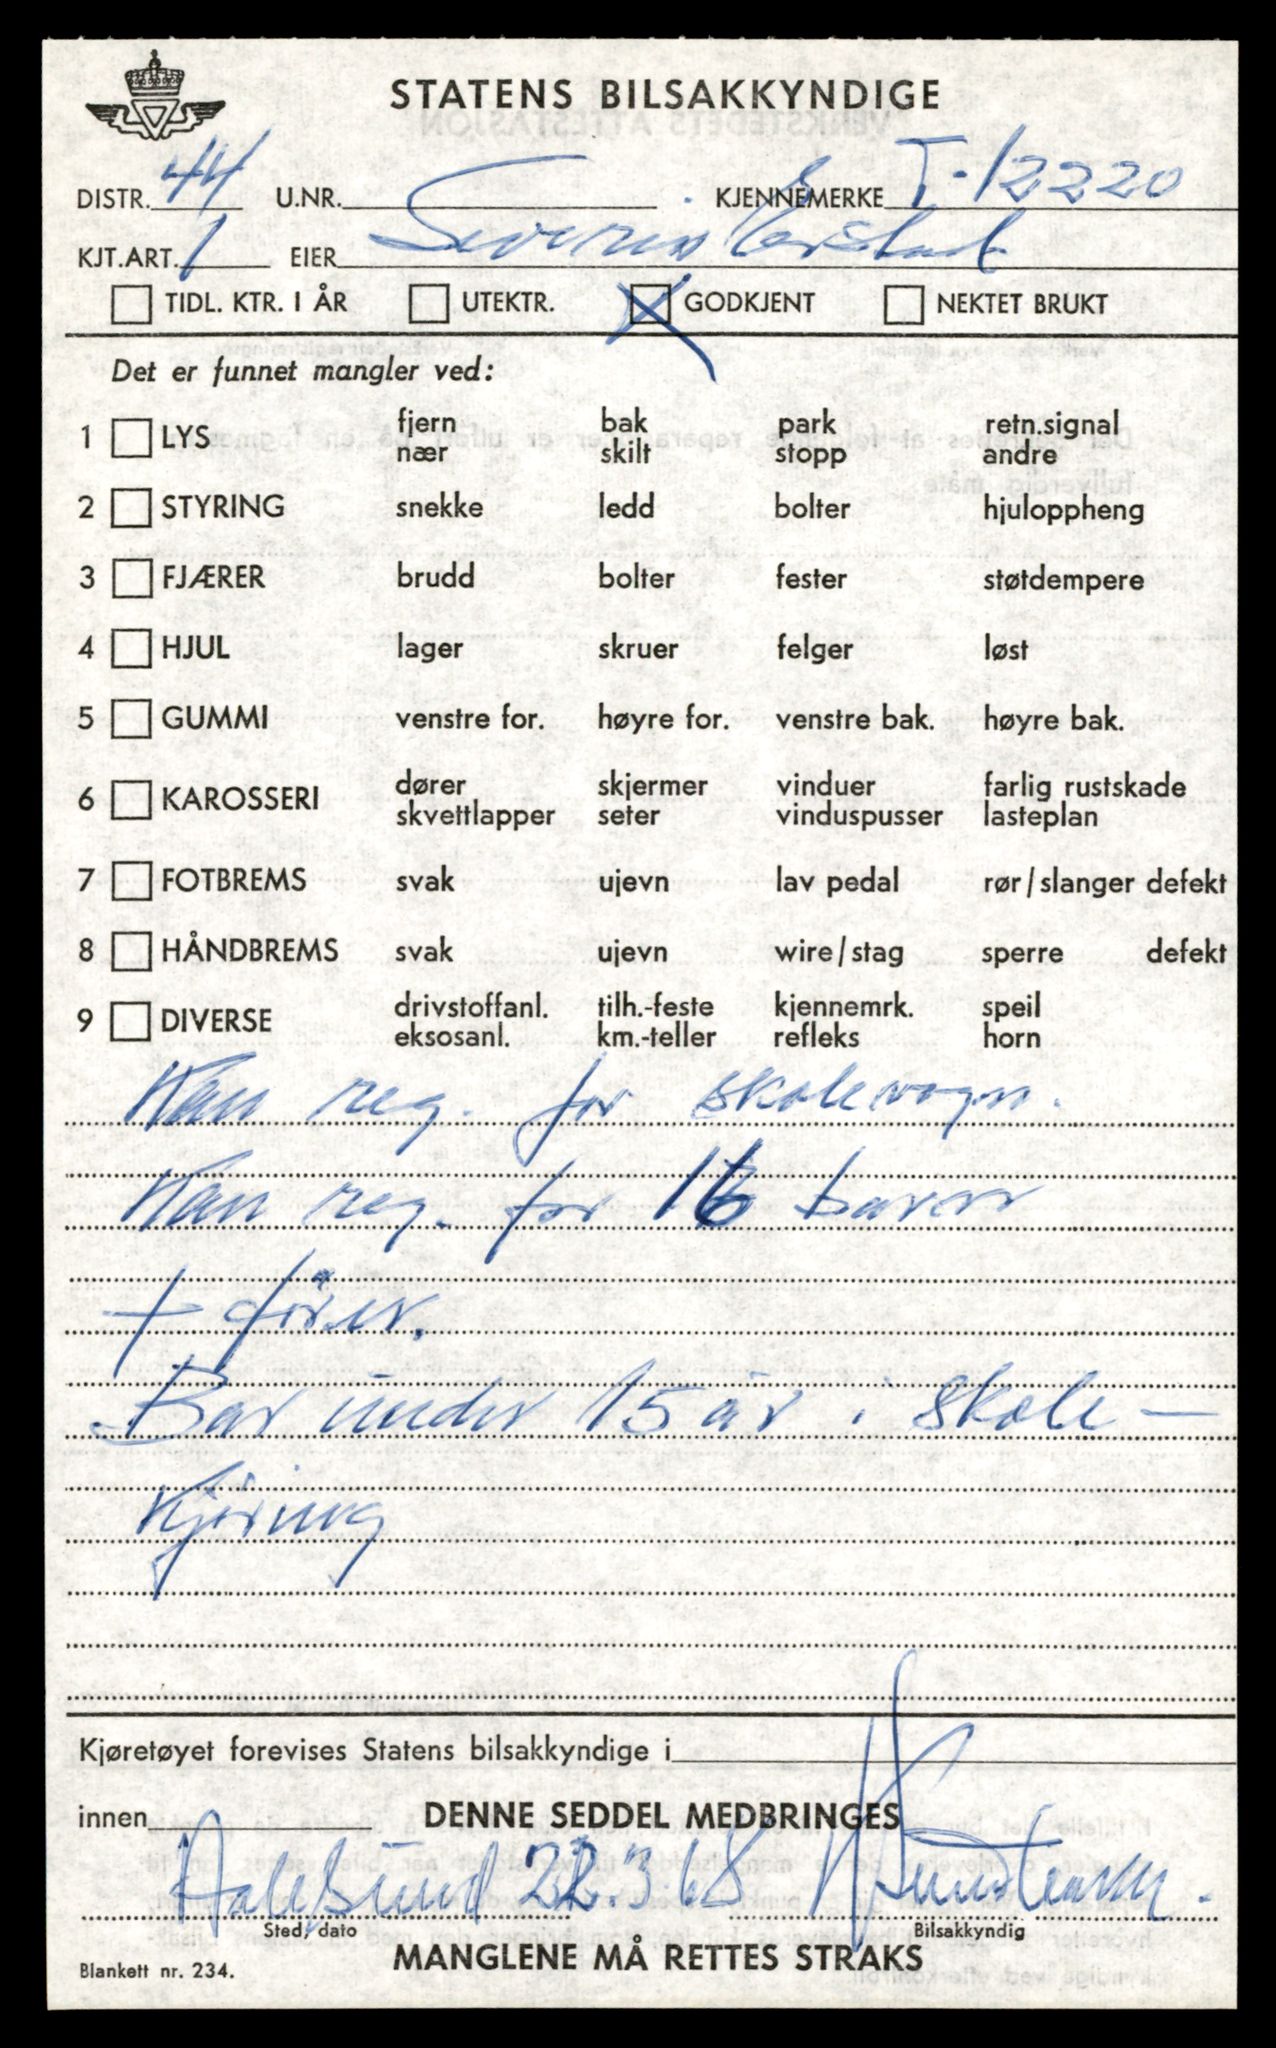 STATENS BILSAKKYNDIGE
DISTR. 44 U.NR. KJENNEMERKE T-12220
KJT.ART. 1 EIER Severin
TIDL. KTR. I ÅR UTEKTR. GODKJENT NEKTET BRUKT
Det er funnet mangler ved:
1 LYS fjern bak park retn.signal
nær skilt stopp andre
2 STYRING snekke ledd bolter hjuloppheng
3 FJÆRER brudd bolter fester støtdempere
4 HJUL lager skruer felger løst
5 GUMMI venstre for. høyre for. venstre bak. høyre bak.
6 KAROSSERI dører skjermer vinduer farlig rustskade
skvettlapper seter vinduspusser lasteplan
7 FOTBREMS svak ujevn lav pedal rør/slanger defekt
8 HÅNDBREMS svak ujevn wire/stag sperre defekt
9 DIVERSE drivstoffanl. tilh.-feste kjennemrk. speil
eksosanl. km.-teller refleks horn
Kan reg. for skolevogn.
Kan reg. for 16 barn
+ fører.
Bar under 15 år i skole-
kjøring
Kjøretøyet forevises Statens bilsakkyndige i
innen DENNE SEDDEL MEDBRINGES
Aalesund 22.3.68
Sted, dato Bilsakkyndig
MANGLENE MÅ RETTES STRAKS
Blankett nr. 234.